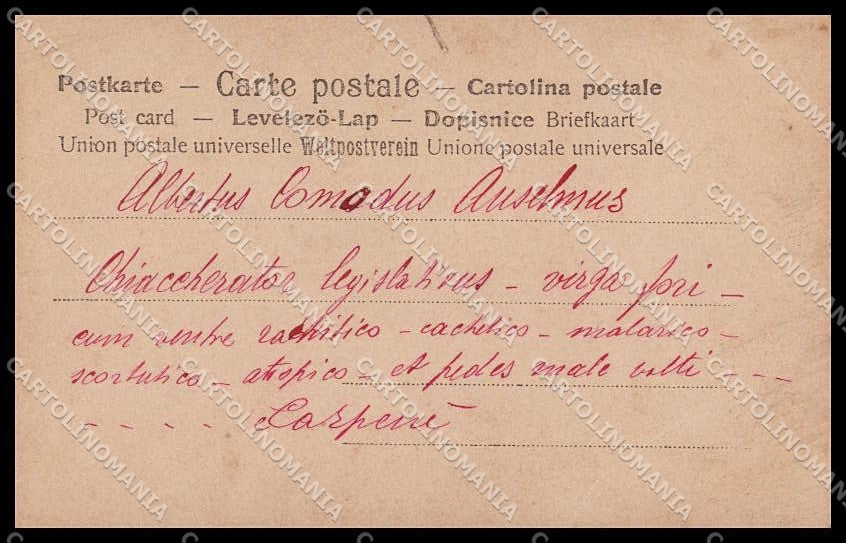 Postkarte — Carte postale — Cartolina postale
Post card — Levelező-Lap — Dopisnice Briefkaart
Union postale universelle Weltpostverein Unione postale universale
Albertus Comodus Anselmus
Chiaccherator legislativus - virga fori -
cum ventre rachitico - cachetico - malarico -
scorbutico - atropico - et pedes male volti - - -
- - - - - Carpenè
CARTOLINOMANIA